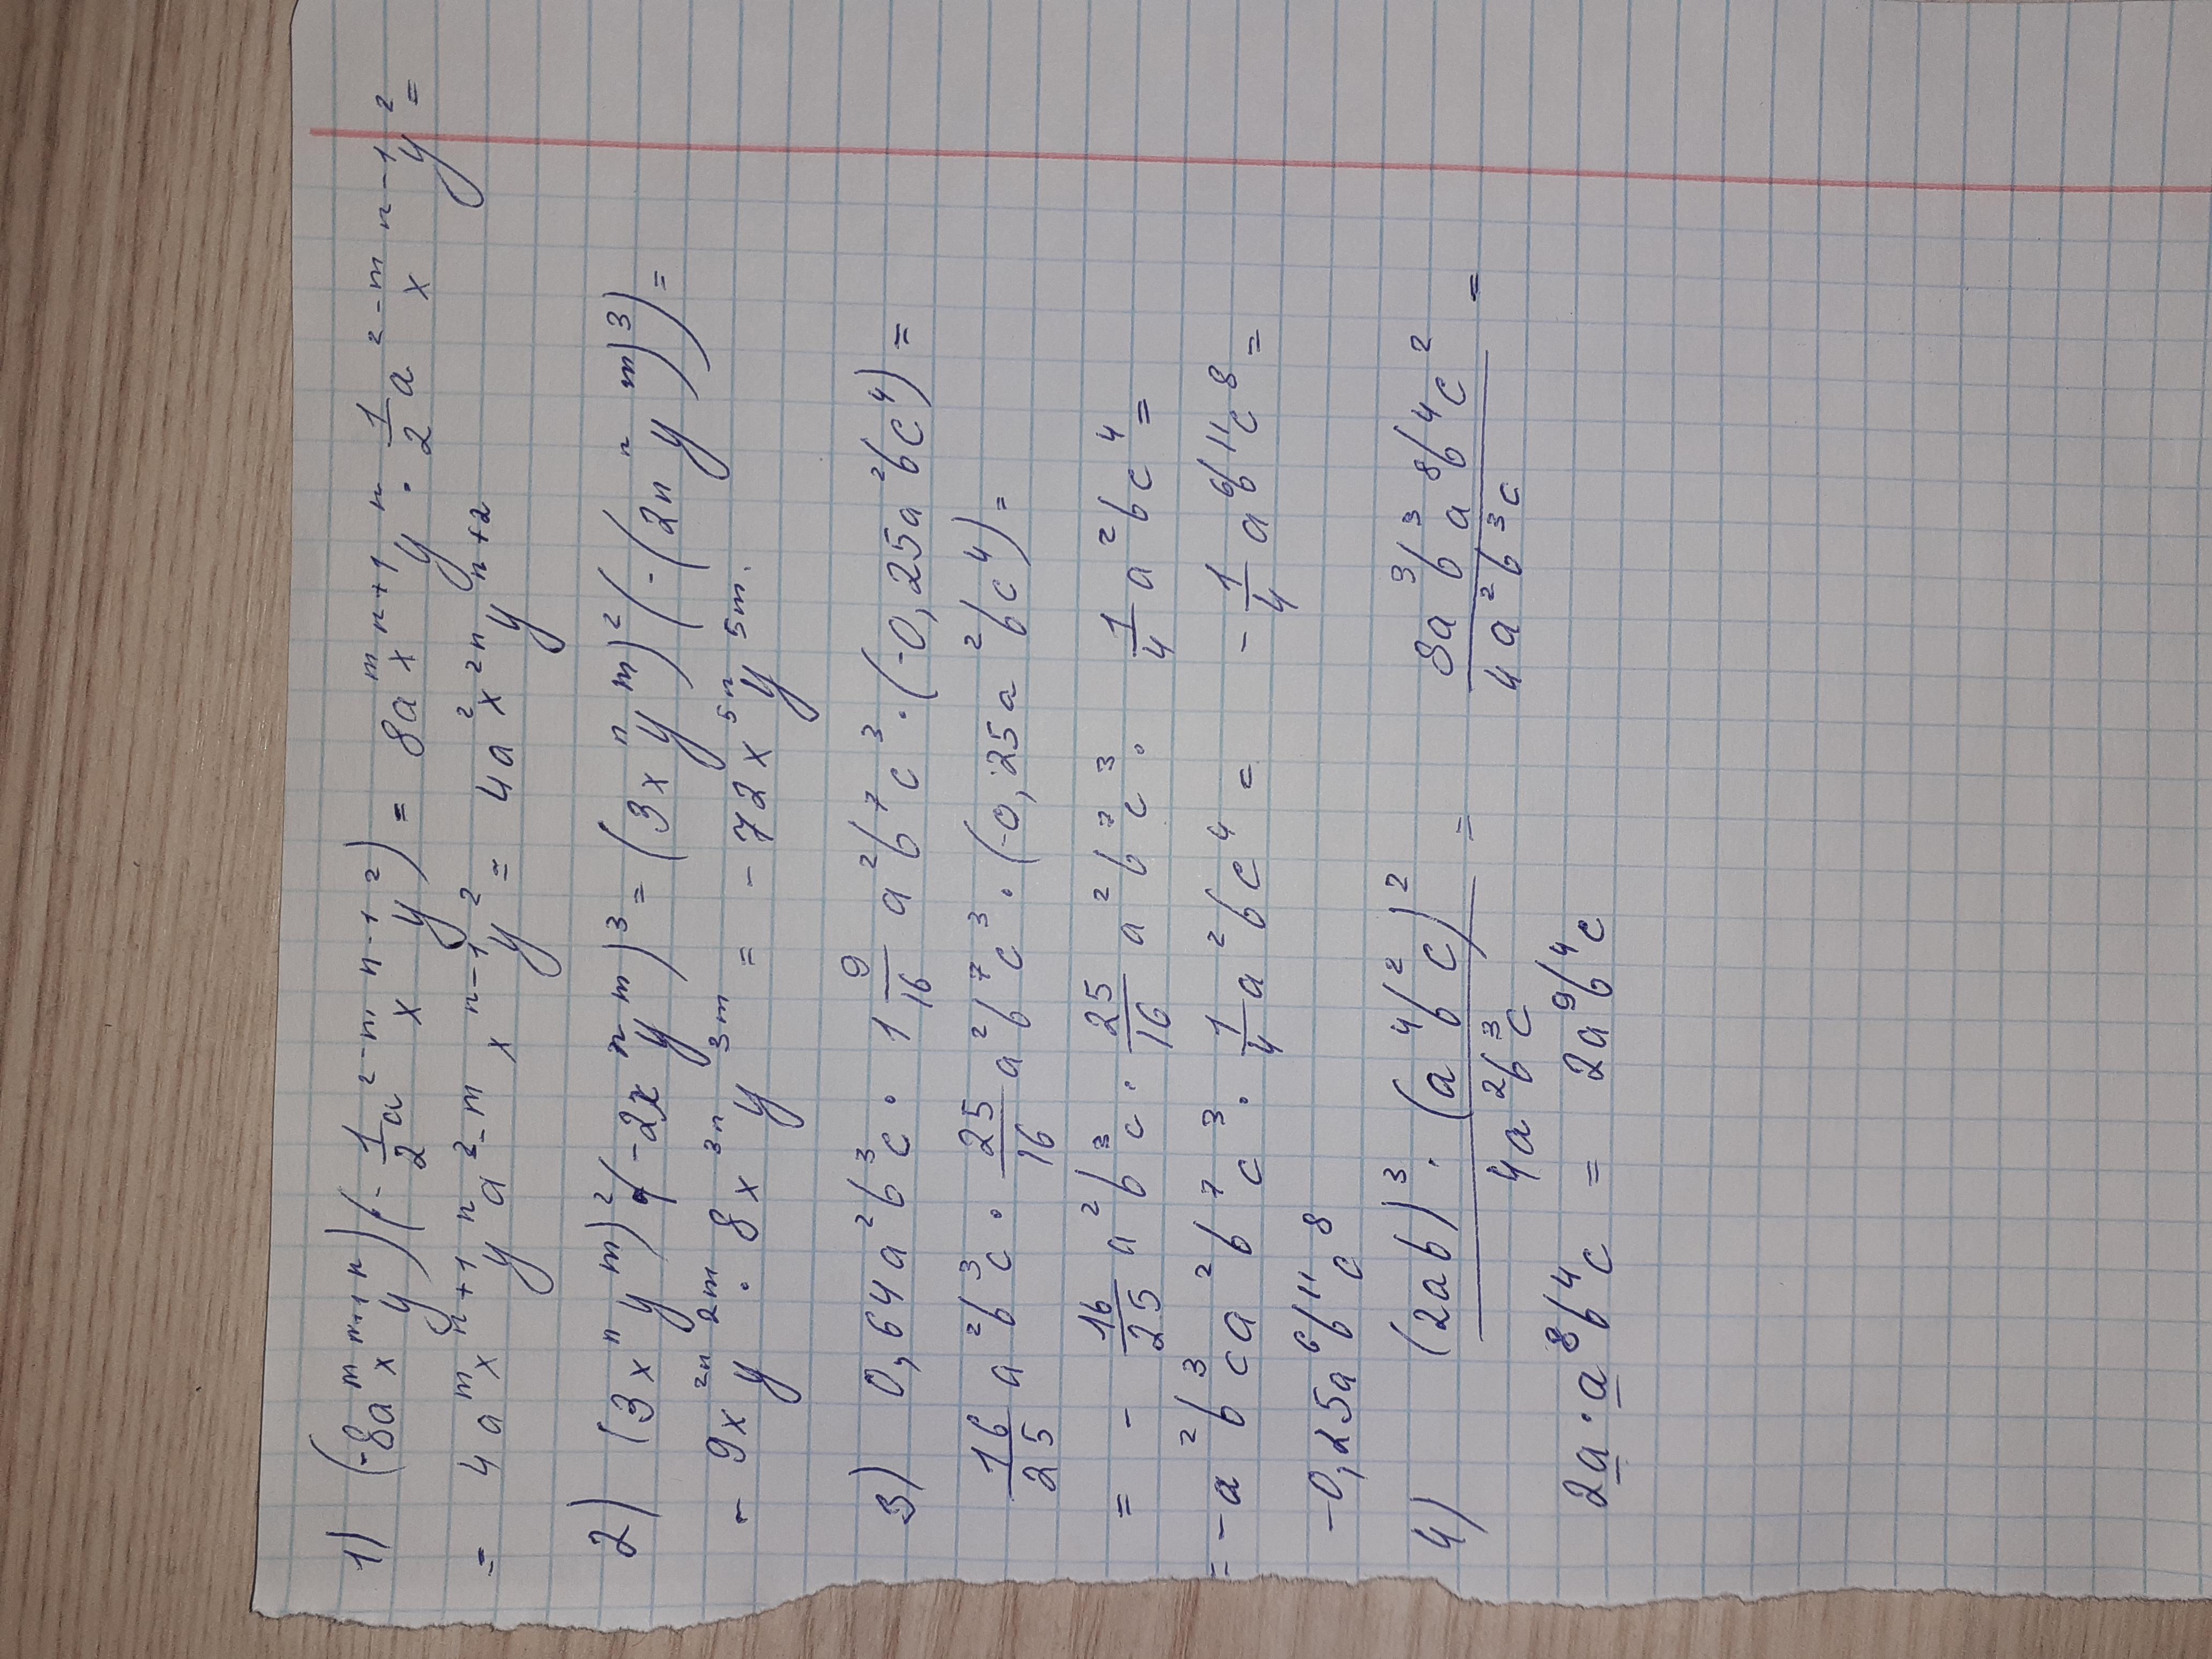 1) (-8aᵐxⁿ⁺¹yⁿ)(-1/2a²⁻ᵐxⁿ⁻¹y²) = 8aᵐxⁿ⁺¹yⁿ · 1/2a²⁻ᵐxⁿ⁻¹y² =
= 4aᵐxⁿ⁺¹yⁿa²⁻ᵐxⁿ⁻¹y² = 4a²x²ⁿyⁿ⁺²
2) (3xⁿyᵐ)²(-2xⁿyᵐ)³ = (3xⁿyᵐ)²(-(2nⁿyᵐ)³) =
- 9x²ⁿy²ᵐ · 8x³ⁿy³ᵐ = -72x⁵ⁿy⁵ᵐ.
3) 0,64a²b³c · 1 9/16 a²b⁷c³ · (-0,25a²bc⁴) =
16/25 a²b³c · 25/16 a²b⁷c³ · (-0,25a²bc⁴) =
= - 16/25 a²b³c · 25/16 a²b⁷c³ · 1/4 a²bc⁴ =
= -a²b³ca²b⁷c³ · 1/4 a²bc⁴ = -1/4 a⁶b¹¹c⁸ =
-0,25a⁶b¹¹c⁸
4) (2ab)³ · (a⁴b²c)² / 4a²b³c = 8a³b³a⁸b⁴c² / 4a²b³c =
2a·a⁸b⁴c = 2a⁹b⁴c